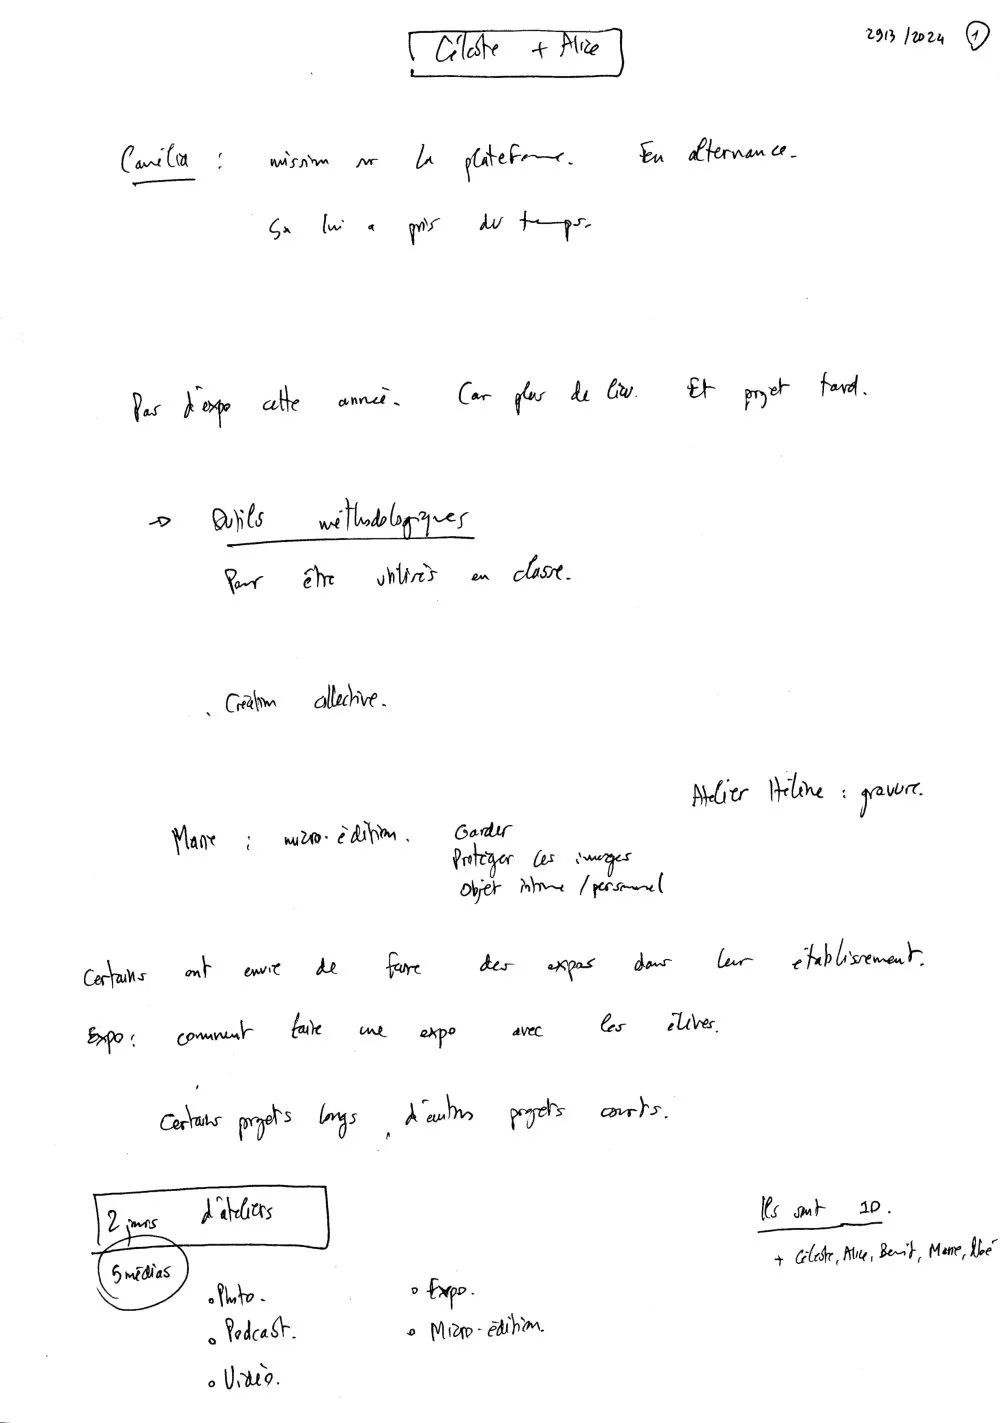 Céleste + Alice
29/3/2024 1
Camélia : mission sur la plateforme. En alternance.
Ça lui a pris du temps.
Pas d'expo cette année. Car plus de lieu. Et projet tard.
→ Outils méthodologiques
Pour être utilisés en classe.
. Création collective.
Atelier Hélène : gravure.
: micro-édition. Garder
Protéger ces images
Objet intime / personnel
Certains ont envie de faire des expos dans leur établissement.
Expo : comment faire une expo avec les élèves.
Certains projets longs, d'autres projets courts.
2 jours d'ateliers
5 médias
• Photo.
• Podcast.
• Vidéo.
• Expo.
• Micro-édition.
Ils sont 10.
+ Céleste, Alice, Benoit,